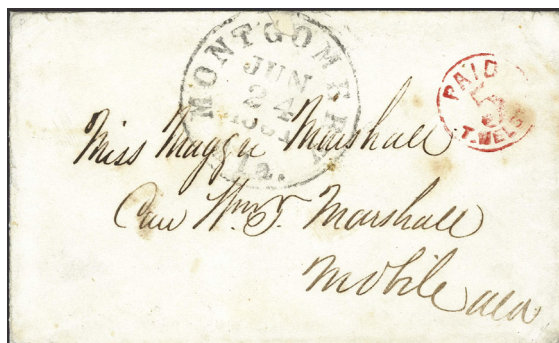 MONTGOMERY
Ala.
JUN
24
PAID
5
T. WELS
Miss Maggie Marshall
Care Wm T. Marshall
Mobile Ala